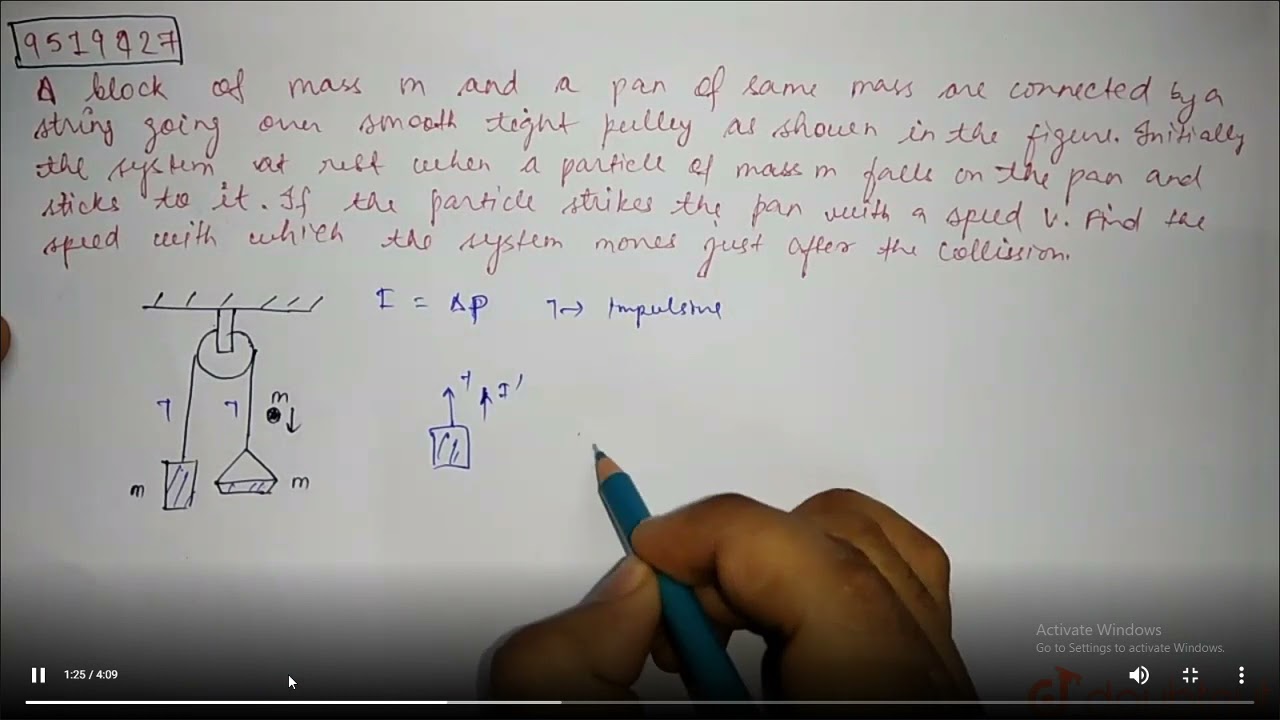 9519427
A block of mass m and a pan of same mass are connected by a
string going over smooth tight pulley as shown in the figure. Initially
the system at rest when a particle of mass m falls on the pan and
sticks to it. If the particle strikes the pan with a speed v. Find the
speed with which the system moves just after the collission.
I = Δp T → Impulsive
T T m
T I'
m m
Activate Windows
Go to Settings to activate Windows.
1:25 / 4:09